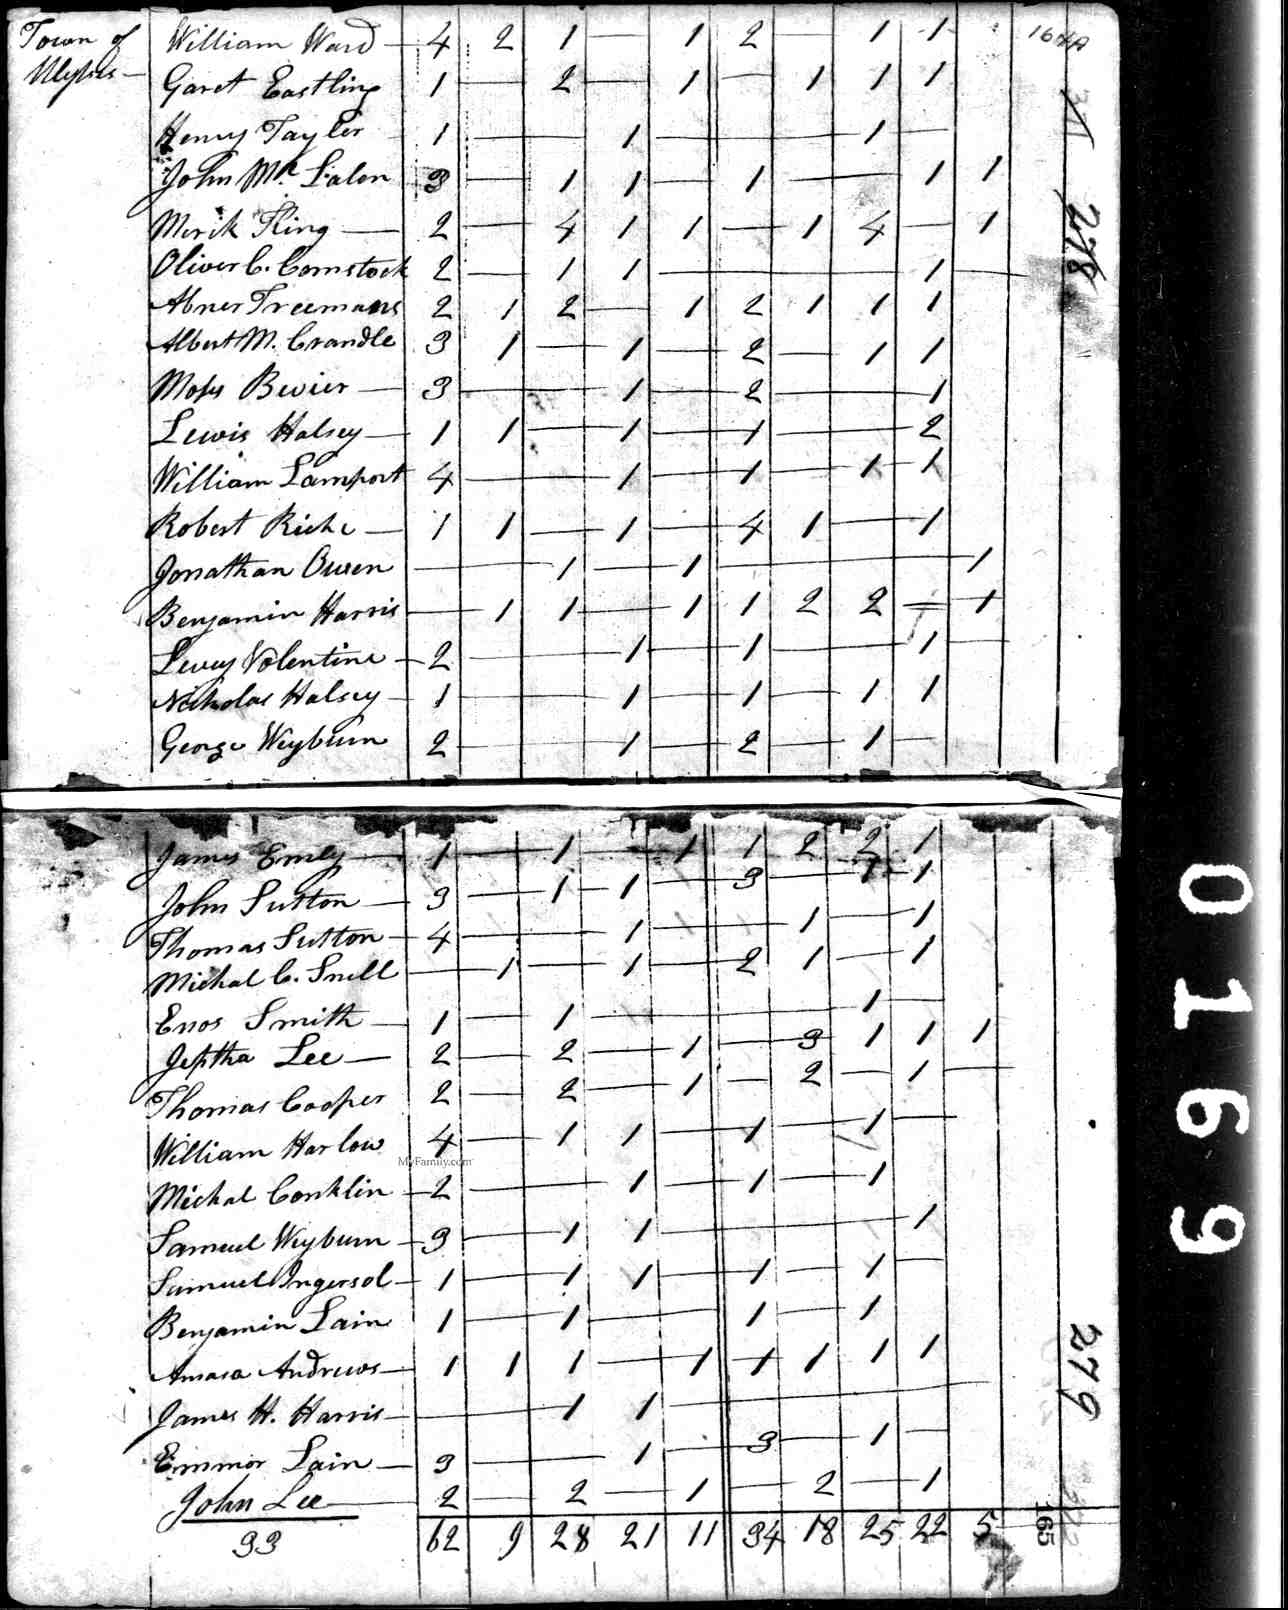 Town of William Ward 4 2 1 — 1 2 — 1 1 164A
Ulyses — Garet Eastling 1 — 2 — 1 — 1 1 1
Henry Tayler 1 — 1 — 1 —
John Mc Lalen 3 — 1 1 — 1 — 1 1
Merik King — 2 — 4 1 1 — 1 4 — 1
278
Oliver C. Comstock 2 — 1 1 — 1 —
Abner Treemans 2 1 2 — 1 2 1 1 1
Albert M. Crandle 3 1 — 1 — 2 — 1 1
Moses Bevier — 3 — 1 — 2 — 1
Lewis Halsey — 1 1 — 1 — 1 — 2
William Lamport 4 — 1 — 1 — 1 1
Robert Riche — 1 1 — 1 — 4 1 — 1
Jonathan Owen — 1 — 1 — 1
Benjamin Harris — 1 1 — 1 1 2 2 — 1
Levey Volentine — 2 — 1 — 1 — 1 —
Nicholas Halsey — 1 — 1 — 1 — 1 1
George Weyburn 2 — 1 — 2 — 1 —
James Emely — 1 — 1 — 1 1 2 2 1
John Sutton — 3 — 1 1 — 3 — 1 1
Thomas Sutton — 4 — 1 — 1 — 1
Michal C. Snell — 1 — 1 — 2 1 — 1
Enos Smith — 1 — 1 — 1 —
Jeptha Lee — 2 — 2 — 1 — 3 1 1 1
Thomas Cooper 2 — 2 — 1 — 2 — 1 —
William Harlow 4 — 1 1 — 1 — 1 —
MyFamily.com
Michal Conklin — 2 — 1 — 1 — 1
Samuel Weyburn — 3 — 1 1 — 1
Samuel Ingersol — 1 — 1 1 — 1 — 1 —
Benjamin Lain 1 — 1 — 1 — 1
Amasa Andrews — 1 1 1 — 1 1 1 1 1
James H. Harris — 1 1 —
Emmor Lain — 3 — 1 — 3 — 1 —
John Lee — 2 — 2 — 1 — 2 — 1
33 62 9 28 21 11 34 18 25 22 5
0169
279
165